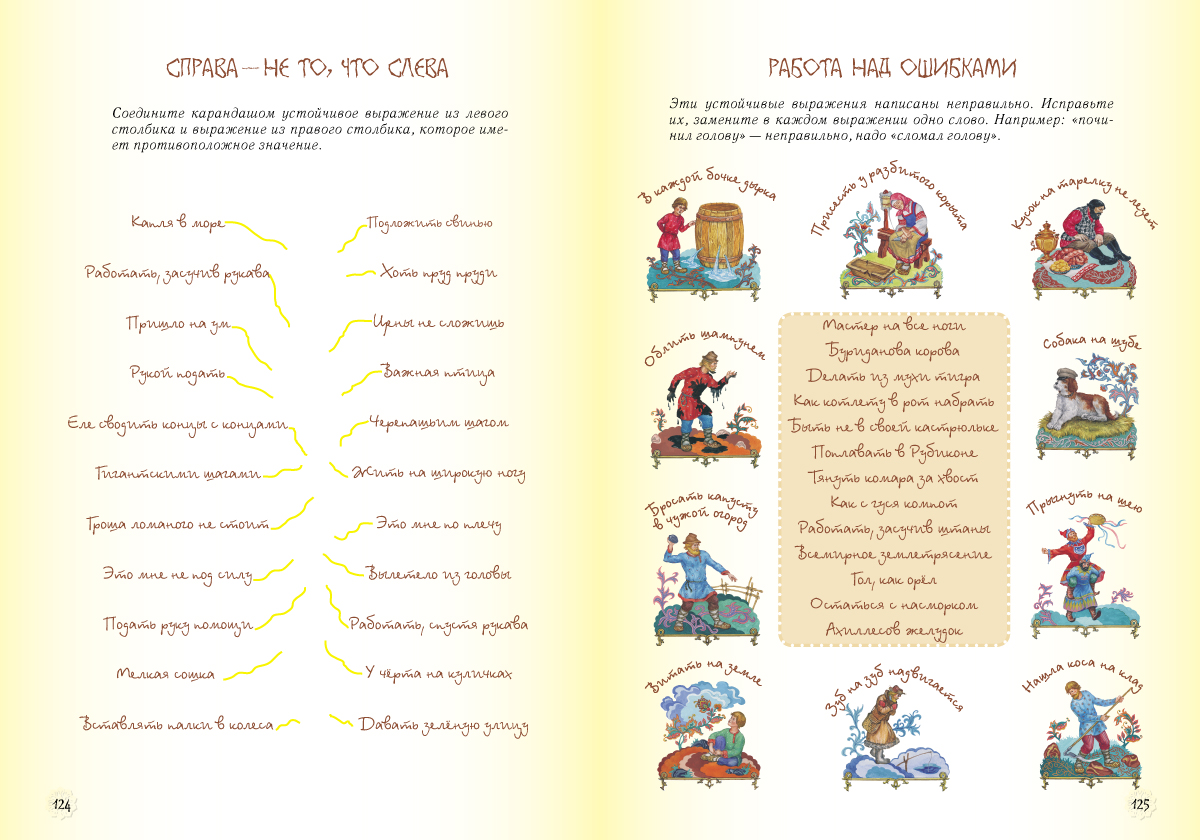 СПРАВА — НЕ ТО, ЧТО СЛЕВА
Соедините карандашом устойчивое выражение из левого
столбика и выражение из правого столбика, которое име-
ет противоположное значение.
Капля в море
Подложить свинью
Работать, засучив рукава
Хоть пруд пруди
Пришло на ум
Цены не сложишь
Рукой подать
Важная птица
Еле сводить концы с концами
Черепашьим шагом
Гигантскими шагами
Жить на широкую ногу
Гроша ломаного не стоит
Это мне по плечу
Это мне не под силу
Вылетело из головы
Подать руку помощи
Работать, спустя рукава
Мелкая сошка
У чёрта на куличках
Вставлять палки в колеса
Давать зелёную улицу
124
РАБОТА НАД ОШИБКАМИ
Эти устойчивые выражения написаны неправильно. Исправьте
их, замените в каждом выражении одно слово. Например: «почи-
нил голову» — неправильно, надо «сломал голову».
В каждой бочке дырка
Присесть у разбитого корыта
Кусок на тарелку не лезет
Облить шампунем
Собака на шубе
Мастер на все ноги
Буриданова корова
Делать из мухи тигра
Как котлету в рот набрать
Быть не в своей кастрюльке
Поплавать в Рубиконе
Тянуть комара за хвост
Как с гуся компот
Работать, засучив штаны
Всемирное землетрясение
Гол, как орёл
Остаться с насморком
Ахиллесов желудок
Бросать капусту
в чужой огород
Прыгнуть на шею
Витать на земле
Зуб на зуб надвигается
Нашла коса на клад
125